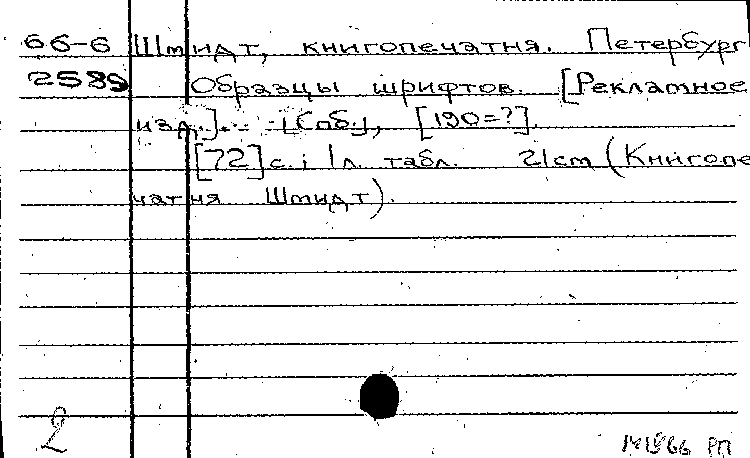 66-6 Шмидт, книгопечатня. Петербург
2589 Образцы шрифтов. [Рекламное
изд.]. [Спб.], [190=?].
[72] с.; 1 л. табл. 21 cm (Книгопе
чатня Шмидт).
2
1966 РП